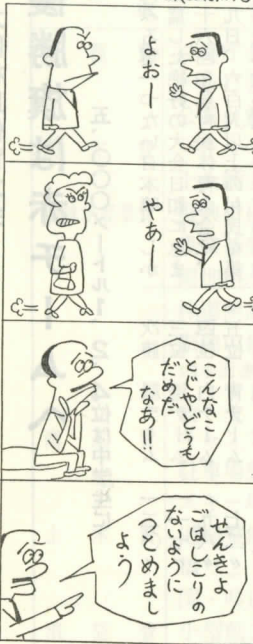 よおー
やあー
こんなこ
とじやどうも
だめだ
なあ!!
せんきよ
ごはしこりの
ないように
つとめまし
よう